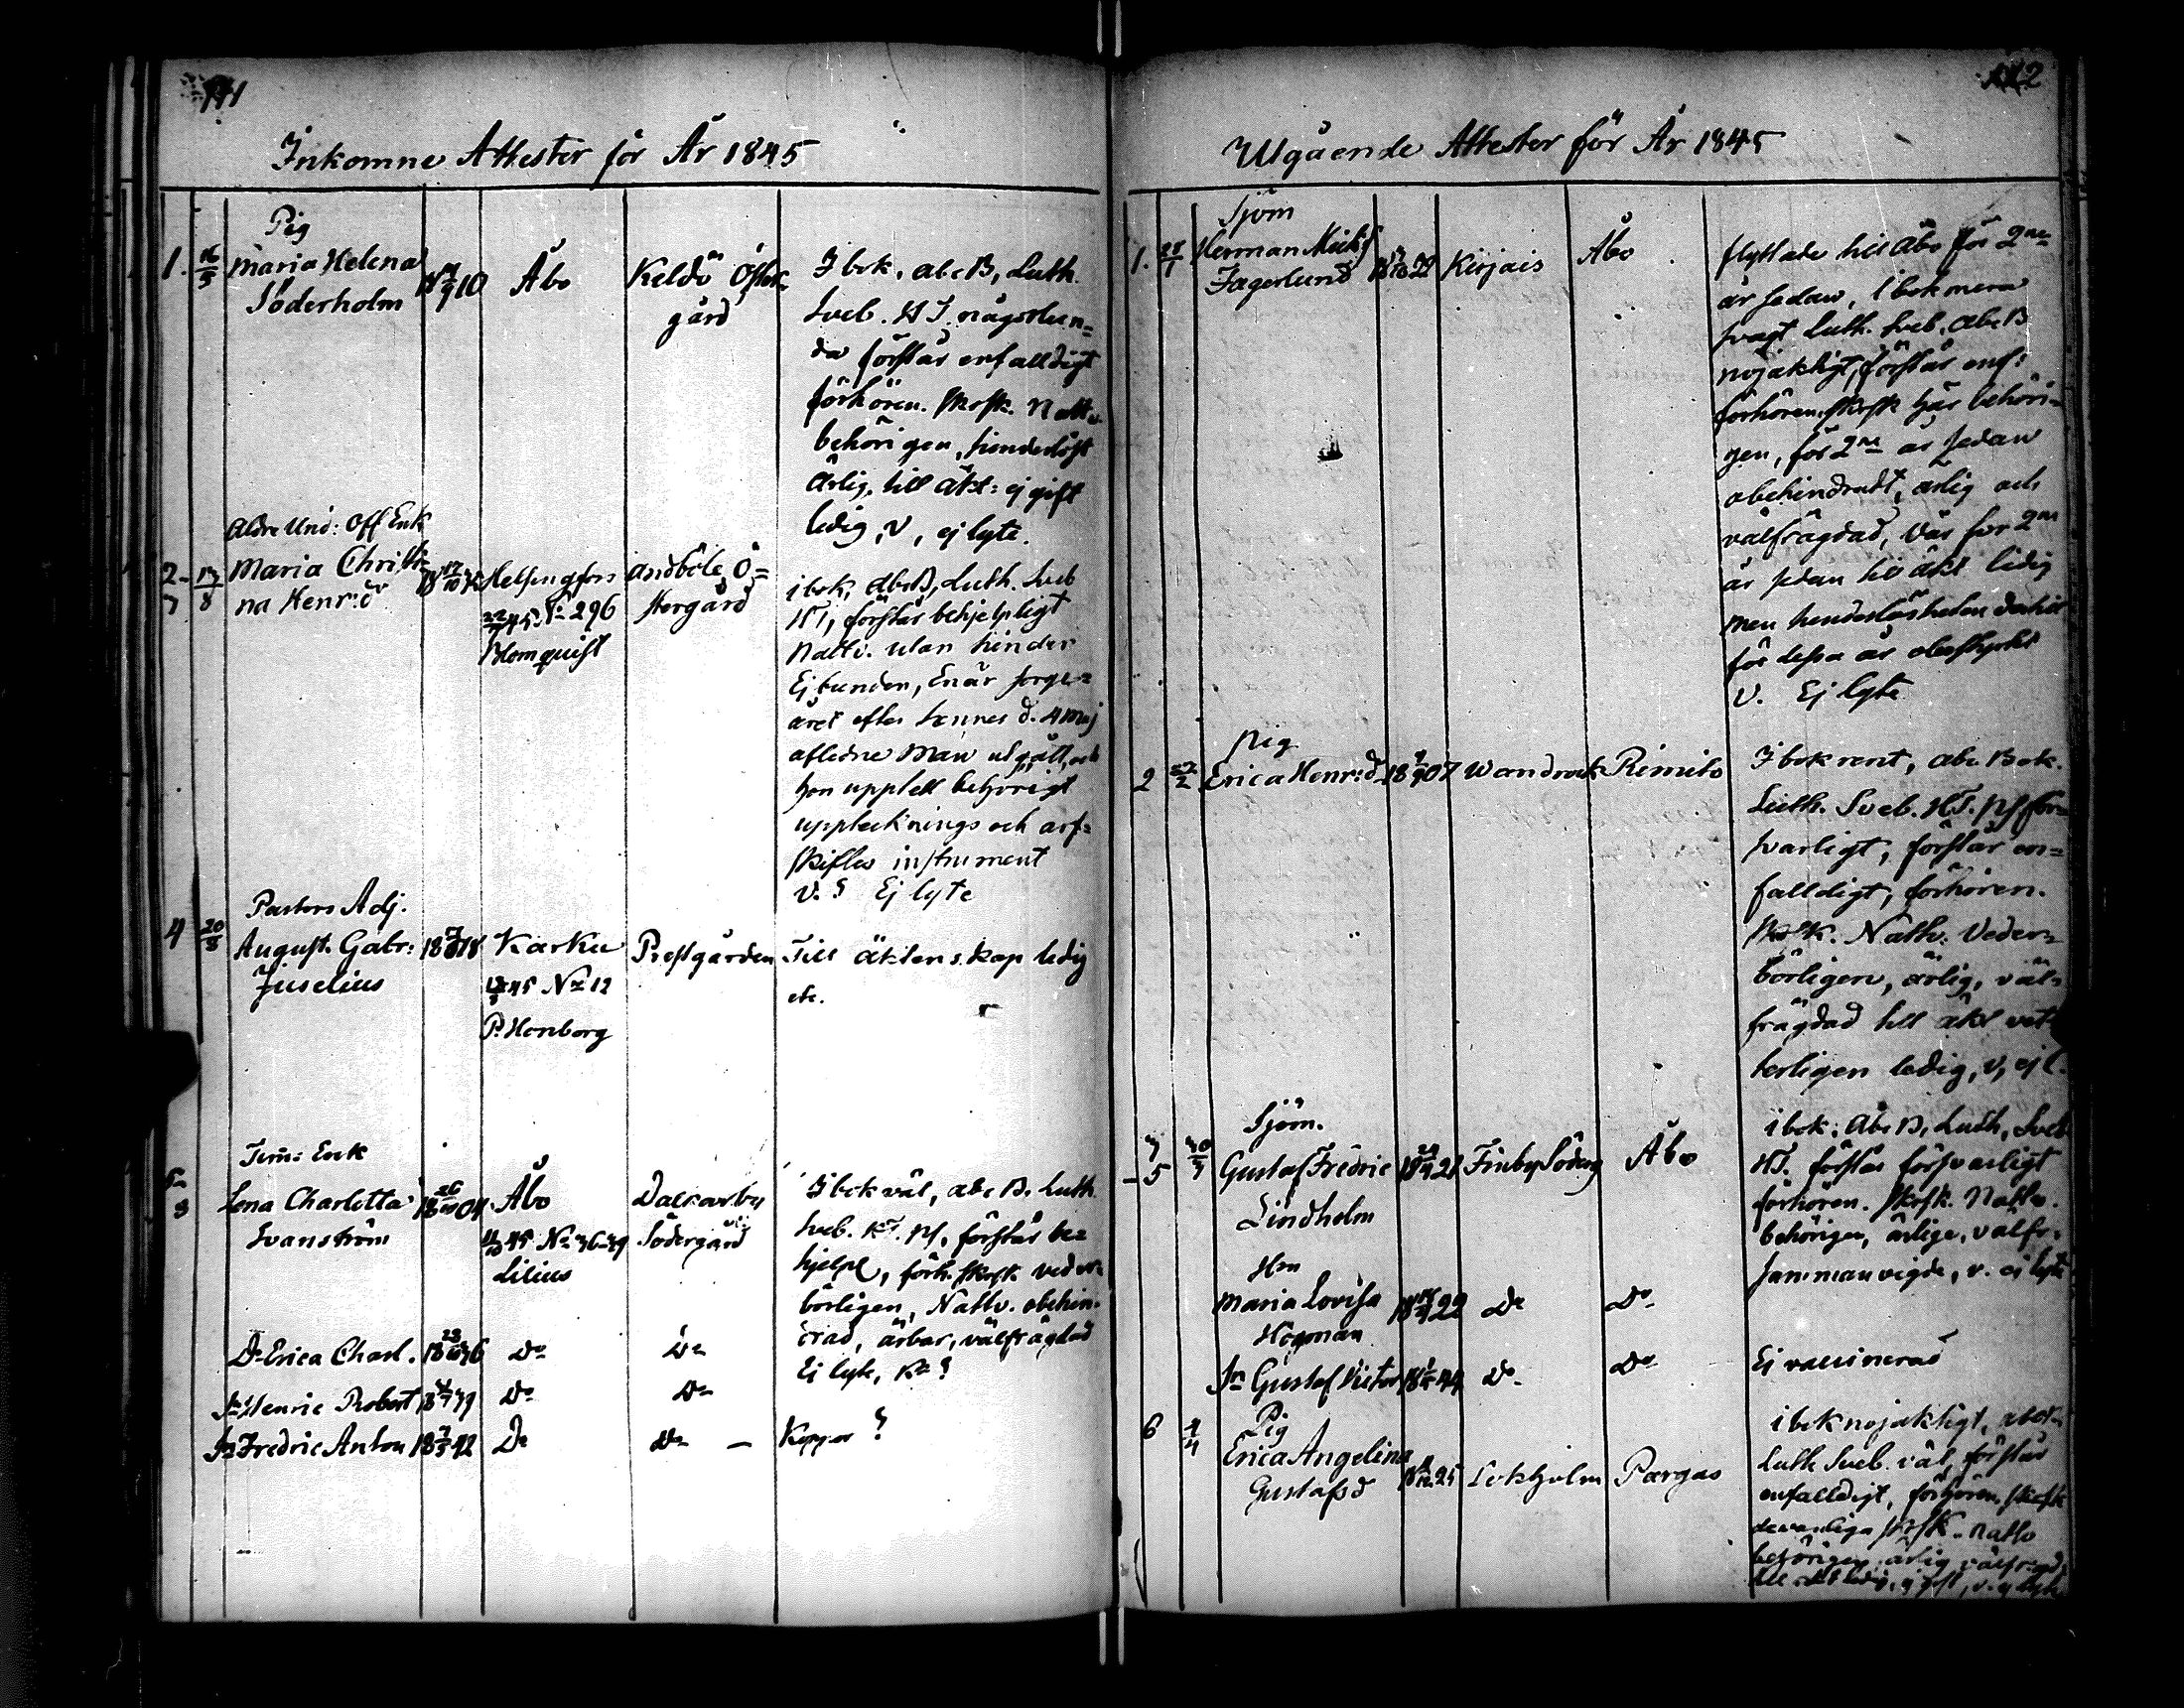 Inkomne Attester för År 1845
Pig
1. 16/5 Maria Helena
Söderholm
Åbo
Keldö Öster-
gård
I bok, abc B, Luth.
Sveb. HT. någorlun=
da förstår enfalldigt
förhören. skrsk. Nattv.
behörigen, hinderlöst
Ärlig, till äkt: ej gift
ledig, V, ej lyte.
Aldre Und: Off Enk
2-3 17/8 Maria Christi-
na Henr:dr
Helsingfors
22/7 45. No 296
Blomquist
Andböle Ö=
stergård
i bok, abcB, Luth. Sveb
HT, förstår behjelpligt
Nattv. utan hinder
Ej bunden, Enär sorge=
året efter hennes d. 4 Maj
aflidne Man utgått, och
hon upptett behörigt
upptecknings och arf=
skiftes instrument
V. ? Ej lyte
Pastors Adj.
4 20/8 August. Gabr:
Juselius
Karku
45 No 12
P. Honborg
Prestgården
Till äktenskap ledig
etc.
Tim: Enk
5- 8 Lena Charlotta
Svanström
18 26/10 04
Åbo
11/10 45 No 36-39
Lilius
Dalkarby
Södergård
I bok väl, abc B. Luth
Sveb. HT. Ps, förstår be=
hjelpl, förh. skrsk veder-
börligen, Nattv. obehin-
drad, ärbar, välfrägdad
Ej lyte, Kr ?
Dr Erica Charl. Do Do
Sn Henric Robert Do Do
Sn Fredric Anton 18 7/5 42 Do Do — Koppor ?
112
Utgående Attester för År 1845
Sjöm
1. 28/1 Herman Mickls
Jagerlund
Kirjais
Åbo
flyttade till Åbo för 2ne
år sedan, i bok mera
svagt Luth. Sveb. Abc B
nöjaktigt, förstår enf:
förhören, skrsk här behöri-
gen, för 2ne år sedan
obehindradt, ärlig och
välfrägdad, Var för 2ne
år sedan till äkt ledig
men hinderlösheten derhän
för dessa år obestyrkt
V. Ej lyte
pig
2 27/2 Erica Henr:dr
Wandrock
Rimito
I bok rent, abc Bok.
Luth. Sveb. HT. Ps för-
svarligt, förstår en=
falldigt, förhören.
skrsk. Nattv. Veder=
börligen, ärlig, väl=
frägdad till äkt vet-
terligen ledig, v, ej l.
Sjöm.
3-5 30/3 Gustaf Fredric
Lindholm
Finby Söderg
Åbo
i bok: Abc B, Luth, Sveb
HT. förstår försvarligt
förhören. skrsk. Nattv.
behörigen, ärliga, välfr.
sammanvigde, v. ej lyte
Hm
Maria Lovisa
Högman
Do Do
Sn Gustaf Victor
Do Do
Ej vaccinerad
Pig
6 4/4 Erica Angelina
Gustafsd
Lokholm
Pargas
i bok nöjaktigt, abcb
Luth Sveb. väl, förstår
enfalldigt, förhören, skrsk
Nattv
behörigen ärlig välfrägd